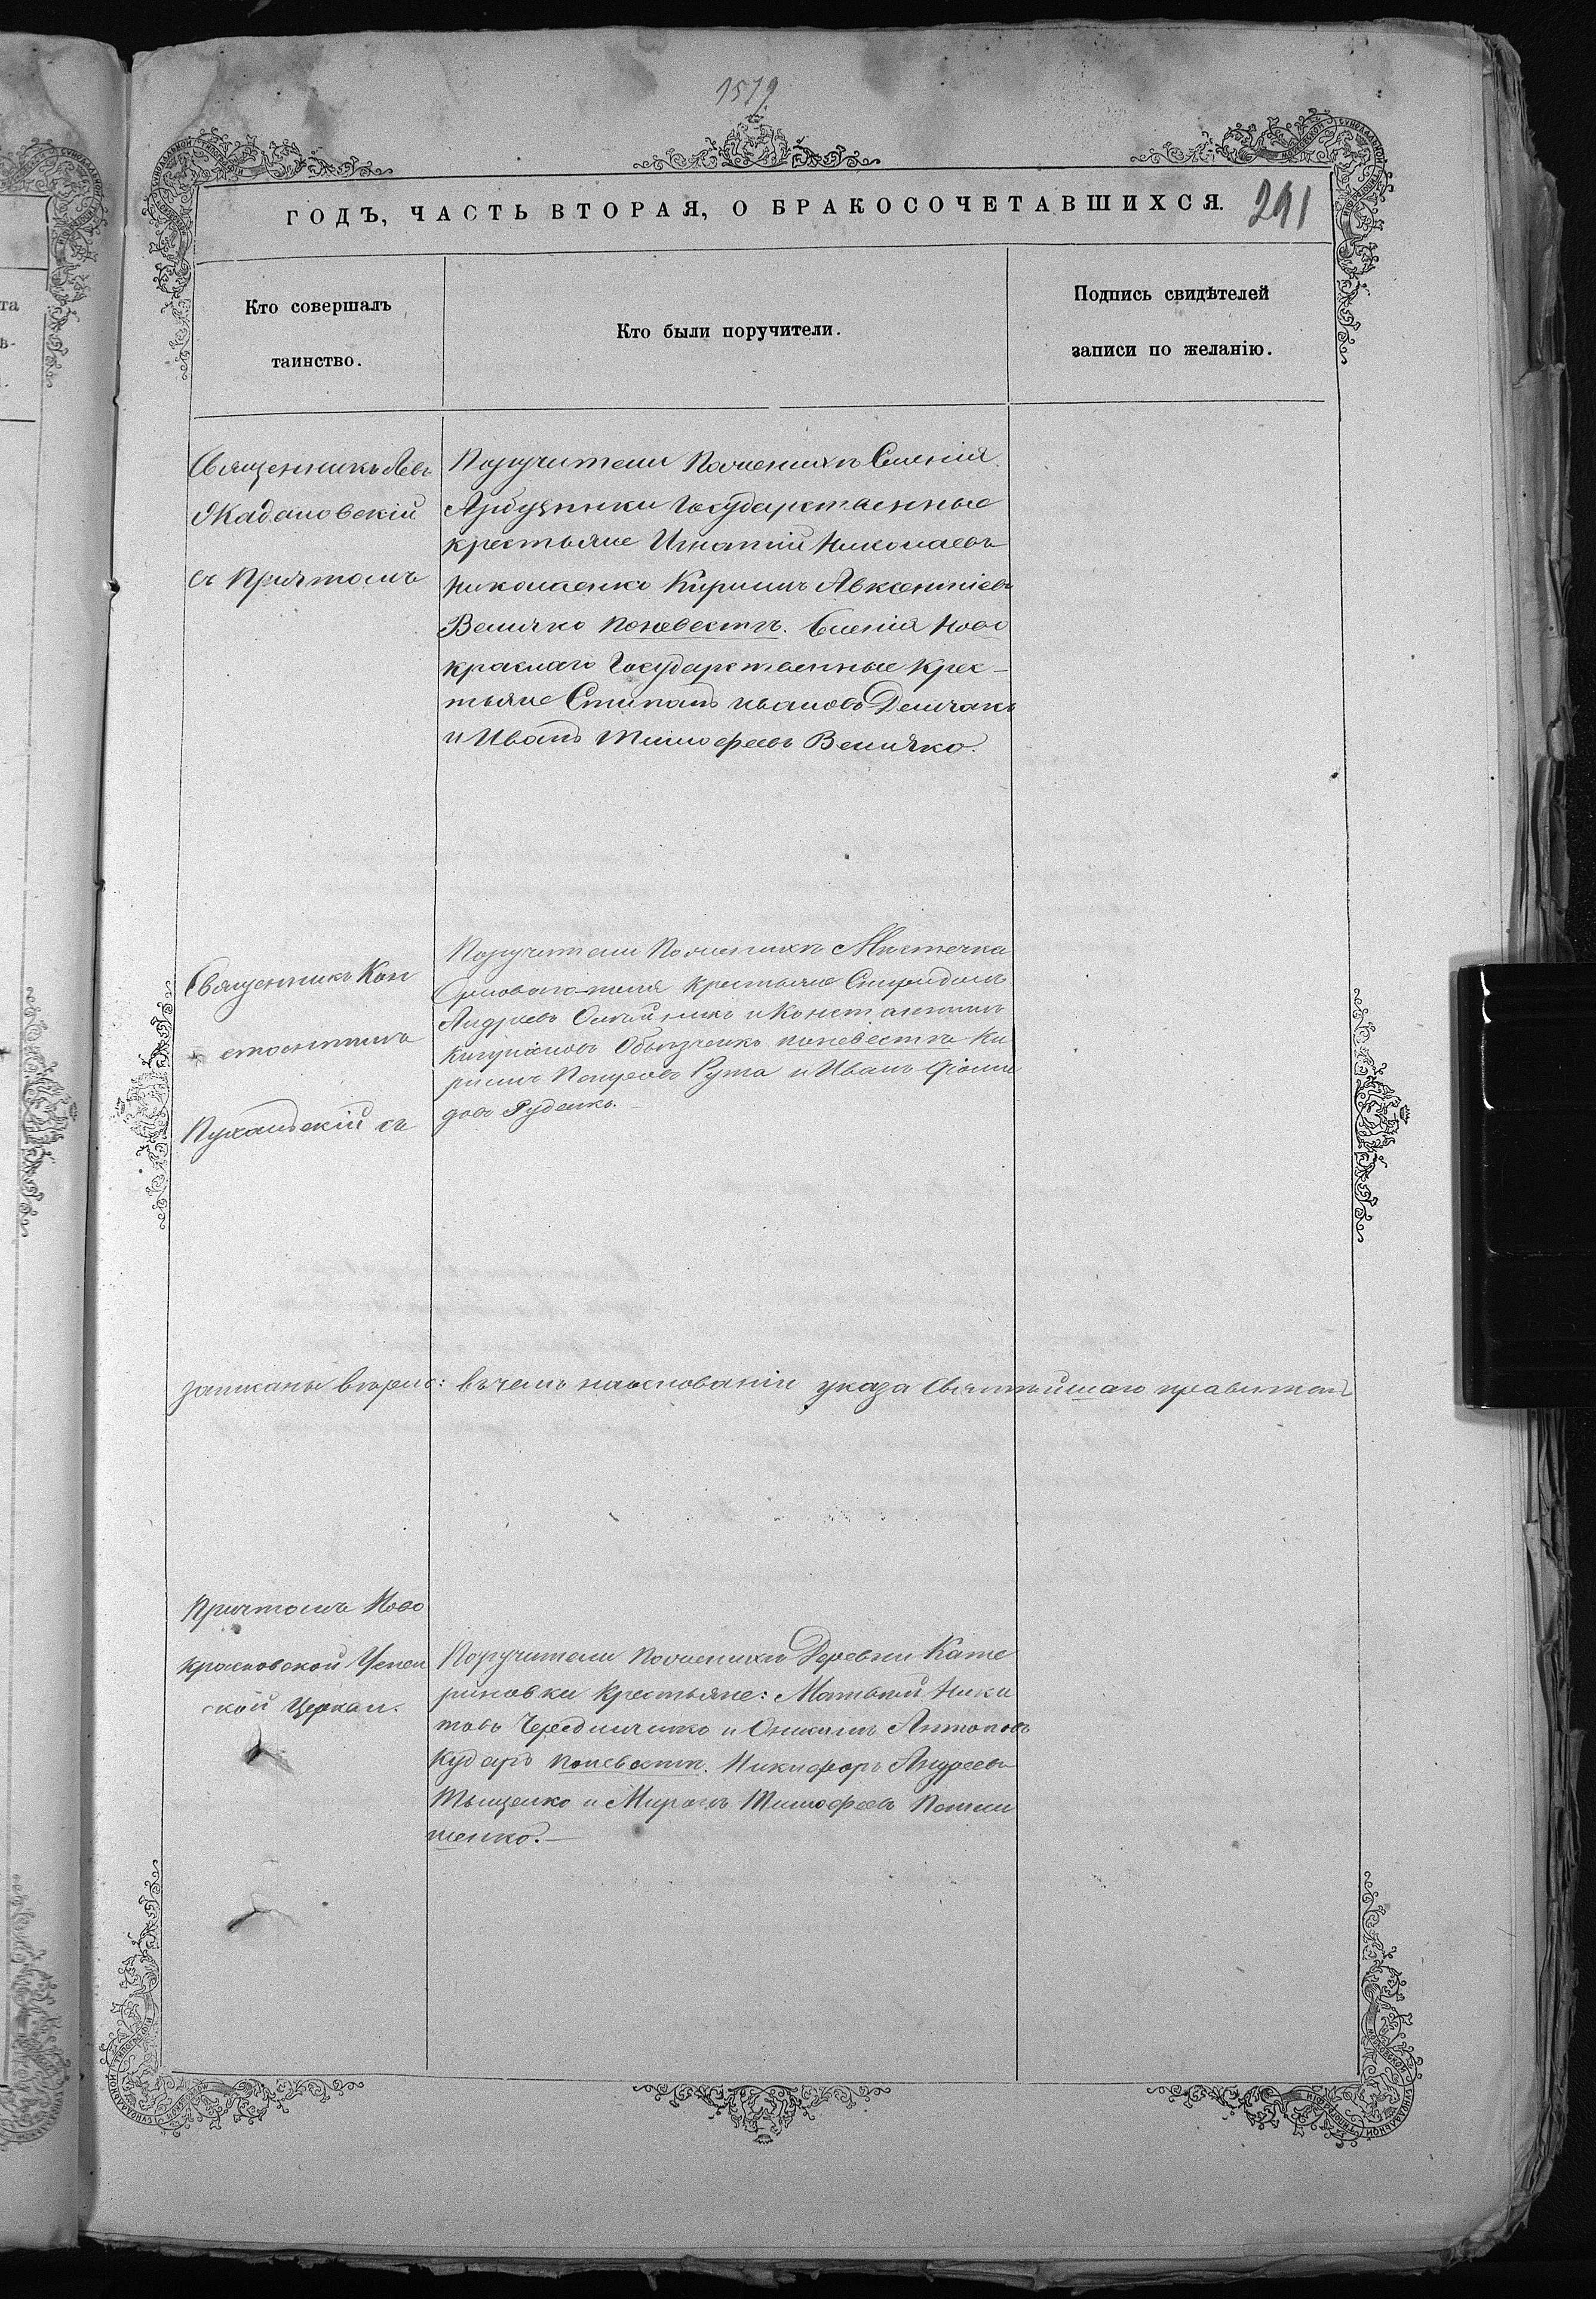 1579
ГОДЪ, ЧАСТЬ ВТОРАЯ, О БРАКОСОЧЕТАВШИХСЯ.
291
Кто совершалъ
таинство.
Кто были поручители.
Подпись свидѣтелей
записи по желанію.
Священникъ Левъ
Жадановскій
съ Причтомъ
Поручители Поженихѣ Селенія
Арбузинки Государственные
крестьяне Игнатій Николаевъ
Николаенко Кирилъ Авксентіевъ
Величко Поневестѣ. Селенія Ново
краснаго Государственные Крес-
тьяне Стипанъ Ивановъ
и Иванъ Тимофеевъ Величко.
Священникъ Кон
стантинъ
Пухальскій съ
Поручители Поженихѣ Мѣстечка
Крестьяне Спиридонъ
Андреевъ Олейникъ и Константинъ
Кипріановъ поневестѣ Ки
рилъ Рута и Иванъ
довъ Руденко.
записаны вчемъ наоснованіи указа Святѣйшаго правител
Причтомъ Ново
красновской Успен
ской Церкви.
Поручители Поженихѣ Деревни Кате
риновки Крестьяне: Матвѣй Ники
товъ Чередниченко и Антоновъ
поневестѣ. Никифоръ Андреевъ
Тыщенко и Миронъ Тимофеевъ
шенко.